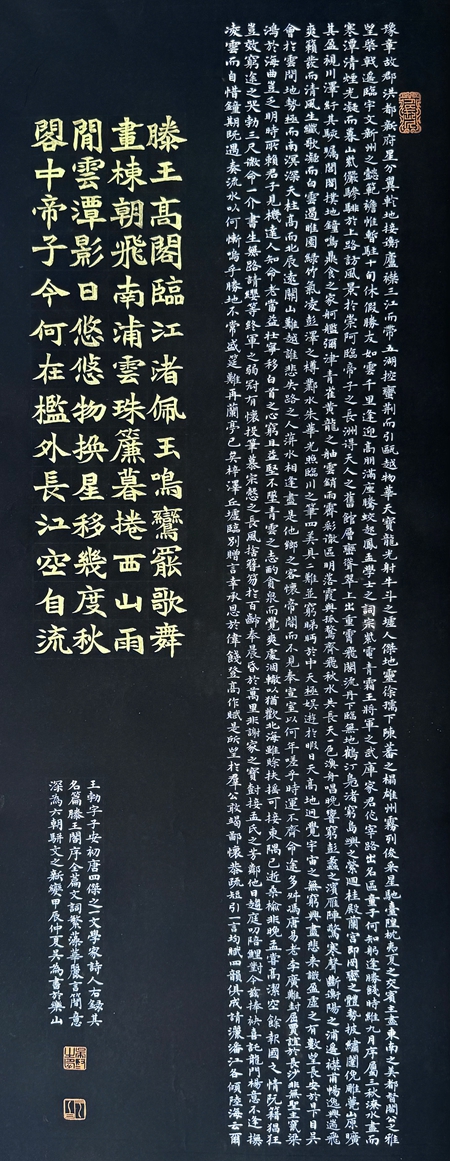 豫章故郡洪都新府星分翼軫地接衡廬襟三江而帶五湖控蠻荊而引甌越物華天寶龍光射牛斗之墟人傑地靈徐孺下陳蕃之榻雄州霧列俊采星馳臺隍枕夷夏之交賓主盡東南之美都督閻公之雅
望棨戟遙臨宇文新州之懿範襜帷暫駐十旬休假勝友如雲千里逢迎高朋滿座騰蛟起鳳孟學士之詞宗紫電青霜王將軍之武庫家君作宰路出名區童子何知躬逢勝餞時維九月序屬三秋潦水盡而
寒潭清煙光凝而暮山紫儼驂騑於上路訪風景於崇阿臨帝子之長洲得天人之舊館層巒聳翠上出重霄飛閣流丹下臨無地鶴汀鳧渚窮島嶼之縈迴桂殿蘭宮即岡巒之體勢披繡闥俯雕甍山原曠
其盈視川澤紆其駭矚閭閻撲地鐘鳴鼎食之家舸艦彌津青雀黃龍之舳雲銷雨霽彩徹區明落霞與孤鶩齊飛秋水共長天一色漁舟唱晚響窮彭蠡之濱雁陣驚寒聲斷衡陽之浦遙襟甫暢逸興遄飛
爽籟發而清風生纖歌凝而白雲遏睢園綠竹氣凌彭澤之樽鄴水朱華光照臨川之筆四美具二難並窮睇眄於中天極娛遊於暇日天高地迥覺宇宙之無窮興盡悲來識盈虛之有數望長安於日下目吳
會於雲間地勢極而南溟深天柱高而北辰遠關山難越誰悲失路之人萍水相逢盡是他鄉之客懷帝閽而不見奉宣室以何年嗟乎時運不齊命途多舛馮唐易老李廣難封屈賈誼於長沙非無聖主竄梁
鴻於海曲豈乏明時所賴君子見機達人知命老當益壯寧移白首之心窮且益堅不墜青雲之志酌貪泉而覺爽處涸轍以猶歡北海雖賒扶搖可接東隅已逝桑榆非晚孟嘗高潔空餘報國之情阮籍猖狂
豈效窮途之哭勃三尺微命一介書生無路請纓等終軍之弱冠有懷投筆慕宗愨之長風捨簪笏於百齡奉晨昏於萬里非謝家之寶樹接孟氏之芳鄰他日趨庭叨陪鯉對今茲捧袂喜託龍門楊意不逢撫
凌雲而自惜鍾期既遇奏流水以何慚嗚乎勝地不常盛筵難再蘭亭已矣梓澤丘墟臨別贈言幸承恩於偉餞登高作賦是所望於羣公敢竭鄙懷恭疏短引一言均賦四韻俱成請灑潘江各傾陸海云爾
滕王高閣臨江渚佩玉鳴鸞罷歌舞
畫棟朝飛南浦雲珠簾暮捲西山雨
閒雲潭影日悠悠物換星移幾度秋
閣中帝子今何在檻外長江空自流
王勃字子安初唐四傑之一文學家詩人右錄其
名篇滕王閣序全篇文詞繁藻華麗言簡意
深為六朝駢文之新變甲辰仲夏吳為書於樂山